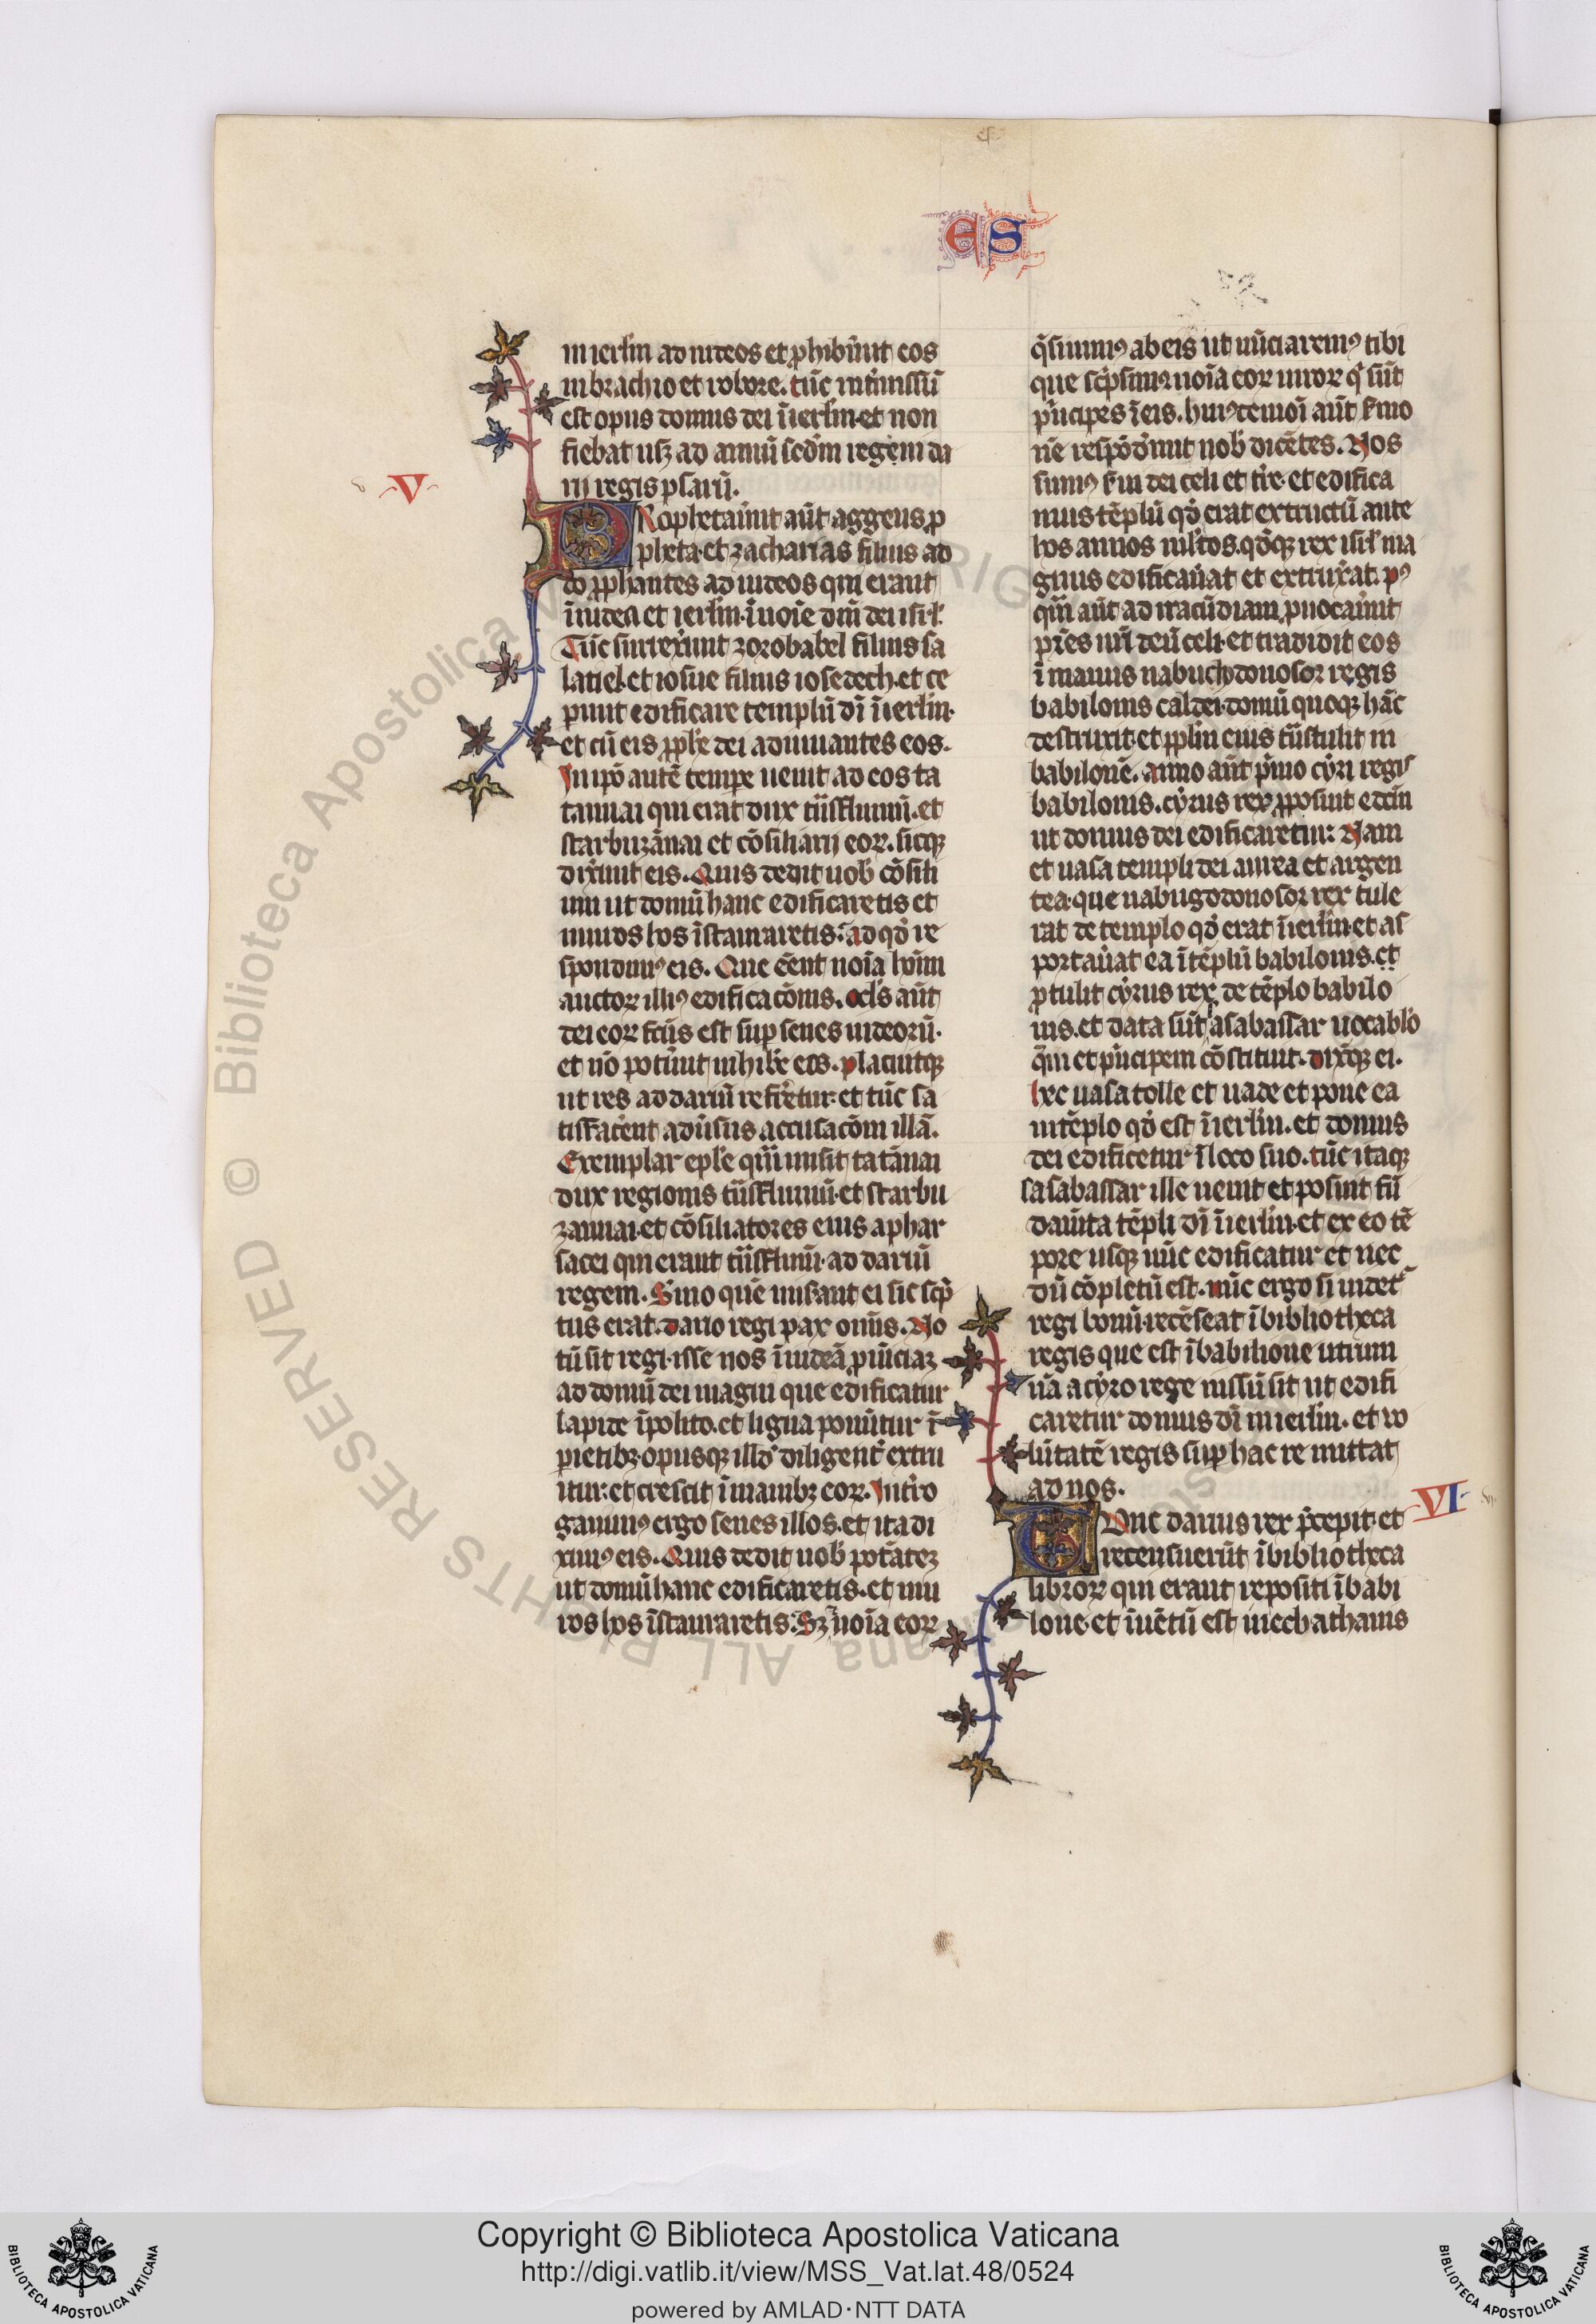 ES
in ierl̃m ad iudeos et ꝓhibũnt eos
in brachio et robore. tũc intmissũ
est opus domus dei ĩ ierl̃m. et non
fiebat usꝫ ad annũ scd̃m regem da
rij regis ꝑsarũ.
V
PRophetauũnt aũt aggeus ꝓ
pheta. et zacharias filius ad
do ꝓphantes ad iudeos qui erant
ĩ iudea et ierl̃m. ĩ noĩe dñi dei isrl̃.
Tũc surrexũnt zorobabel filius sa
latiel. et iosue filius iosedech. et ce
ꝑunt edificare templũ dĩ ĩ ierl̃m.
et cũ eis ꝓphe dei adiuuantes eos.
In ipõ autẽ tempe uenit ad eos ta
tannai qui erat dux tñsflumũ. et
starbuzãnai et cõsiliarij eoꝝ. sicqꝫ
dixũnt eis. Quis dedit uob̃ cõsili
um ut domũ hanc edificaretis et
muros hos ĩstauraretis. ad qđ re
spondimꝰ eis. Que eẽnt noĩa hoĩm
auctoꝝ illiꝰ edificacõnis. ocl̃s aũt
dei eoꝝ fcũs est suꝑ senes iudeorũ.
et nõ potũnt inhibẽ eos. placuitqꝫ
ut res ad dariũ refrẽtur. et tũc sa
tisfacẽnt adũsus accusacõm illã.
Exemplar eplẽ quã misit tatãnai
dux regionis tñsflumũ. et starbu
zannai. et cõsiliatores eius aphar
sacei qui erant tñsflumũ. ad dariũ
regem. Smo quẽ misant ei sic scp̃
tus erat. dario regi pax om̃s. No
tũ sit regi. isse nos ĩ iudeã ꝓuĩciaꝫ
ad domũ dei magni que edificatur
lapide ĩpolito. et ligna ponũtur ĩ
pietibꝫ. opusqꝫ illđ diligent̃ extru
itur. et crescit ĩ manibꝫ eoꝝ. Intro
gauimꝰ ergo senes illos. et ita di
ximꝰ eis. Quis dedit uob̃ potãteꝫ
ut domũ hanc edificaretis. et mu
ros hos ĩstauraretis. Sꝫ noĩa eoꝝ
q̃siuimꝰ ab eis ut nũciaremꝰ tibi
que scp̃simꝰ noĩa eoꝝ uiroꝝ q̃ sũt
pñcipes ĩ eis. huiꝰcemoĩ aũt smo
nẽ respõdũnt nob̃ dicẽtes. Nos
sumꝰ sui dei celi et tre. et edifica
mus tẽplũ qđ erat extructũ ante
hos annos mltos. qđqꝫ rex isrl̃ ma
gnus edificaũat et extruxat. pꝰ
qm̃ aũt ad iracũdiam ꝓuocaũnt
pr̃es nr̃i deũ celi. et tradidit eos
ĩ manus nabuchodonosor regis
babilonis caldei. domũ quoqꝫ hãc
destruxit. et ppl̃m eius trãstulit in
babilonẽ. anno aũt pmo cyri regis
babilonis. cyrus rex ꝓposuit edc̃m
ut domus dei edificaretur. Nam
et uasa templi dei aurea et argen
tea. que nabugodonosor rex tule
rat de templo qđ erat ĩ ierl̃m. et as
portaũat ea ĩ tẽplũ babilonis. et
ꝓtulit cyrus rex de tẽplo babilo
nis. et data sũt sasabassar uocablo
q̃m et pñcipem cõstituit. dixitqꝫ ei.
hec uasa tolle et uade et pone ea
in tẽplo qđ est ĩ ierl̃m. et domus
dei edificetur ĩ loco suo. tũc itaqꝫ
sasabassar ille uenit et posuit fũ
damta tẽpli dĩ ĩ ierl̃m. et ex eo tẽ
pore usqꝫ nũc edificatur et nec
dũ cõpletũ est. nũc ergo si uidet
regi bonũ. recẽseat ĩ bibliotheca
regis que est ĩ babilione utrum
nã a cyro rege iussũ sit ut edifi
caretur domus dĩ in ierl̃m. et uo
lũtatẽ regis suꝑ hac re mittat
ad nos.
VI
TUnc darius rex p̃cepit et
recensuerũt ĩ bibliotheca
libroꝝ qui erant repositi ĩ babi
lone. et ĩuẽtũ est in ecbathanis
© Biblioteca Apostolica Vaticana ALL RIGHTS RESERVED
Copyright © Biblioteca Apostolica Vaticana
http://digi.vatlib.it/view/MSS_Vat.lat.48/0524
powered by AMLAD·NTT DATA
BIBLIOTECA APOSTOLICA VATICANA
BIBLIOTECA APOSTOLICA VATICANA